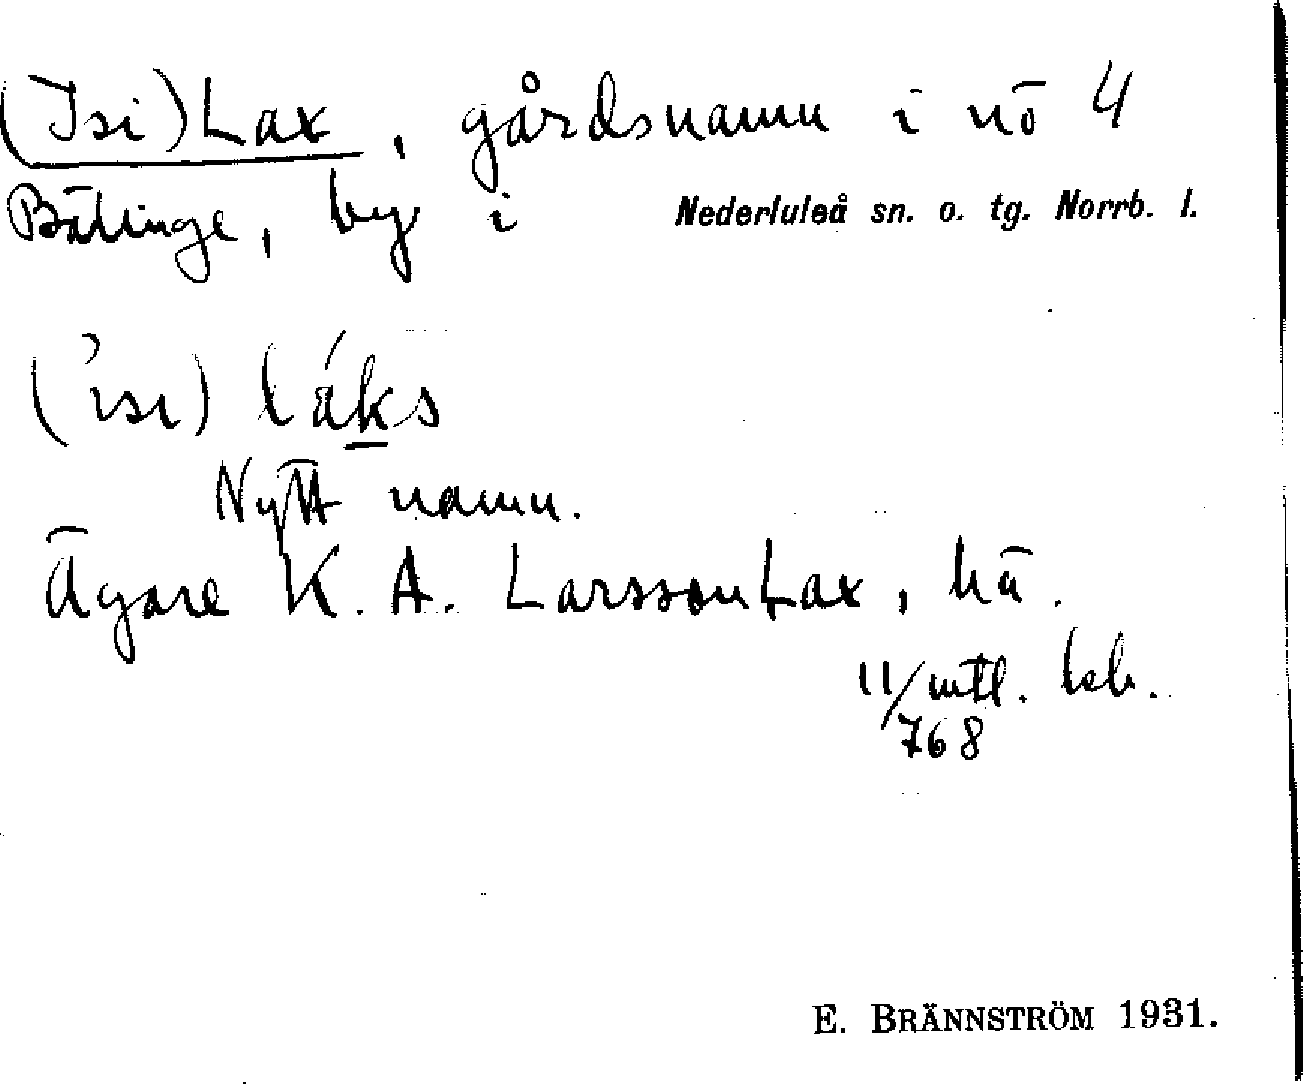 (Isi)Lax, gårdsnamn i nö 4
Bälinge, by i Nederluleå sn. o. tg. Norrb. l.
(ʼisi) láks
Nytt namn.
Ägare K. A. Larsson Lax, hä.
11/768 mtl. ksk.
E. BRÄNNSTRÖM 1931.